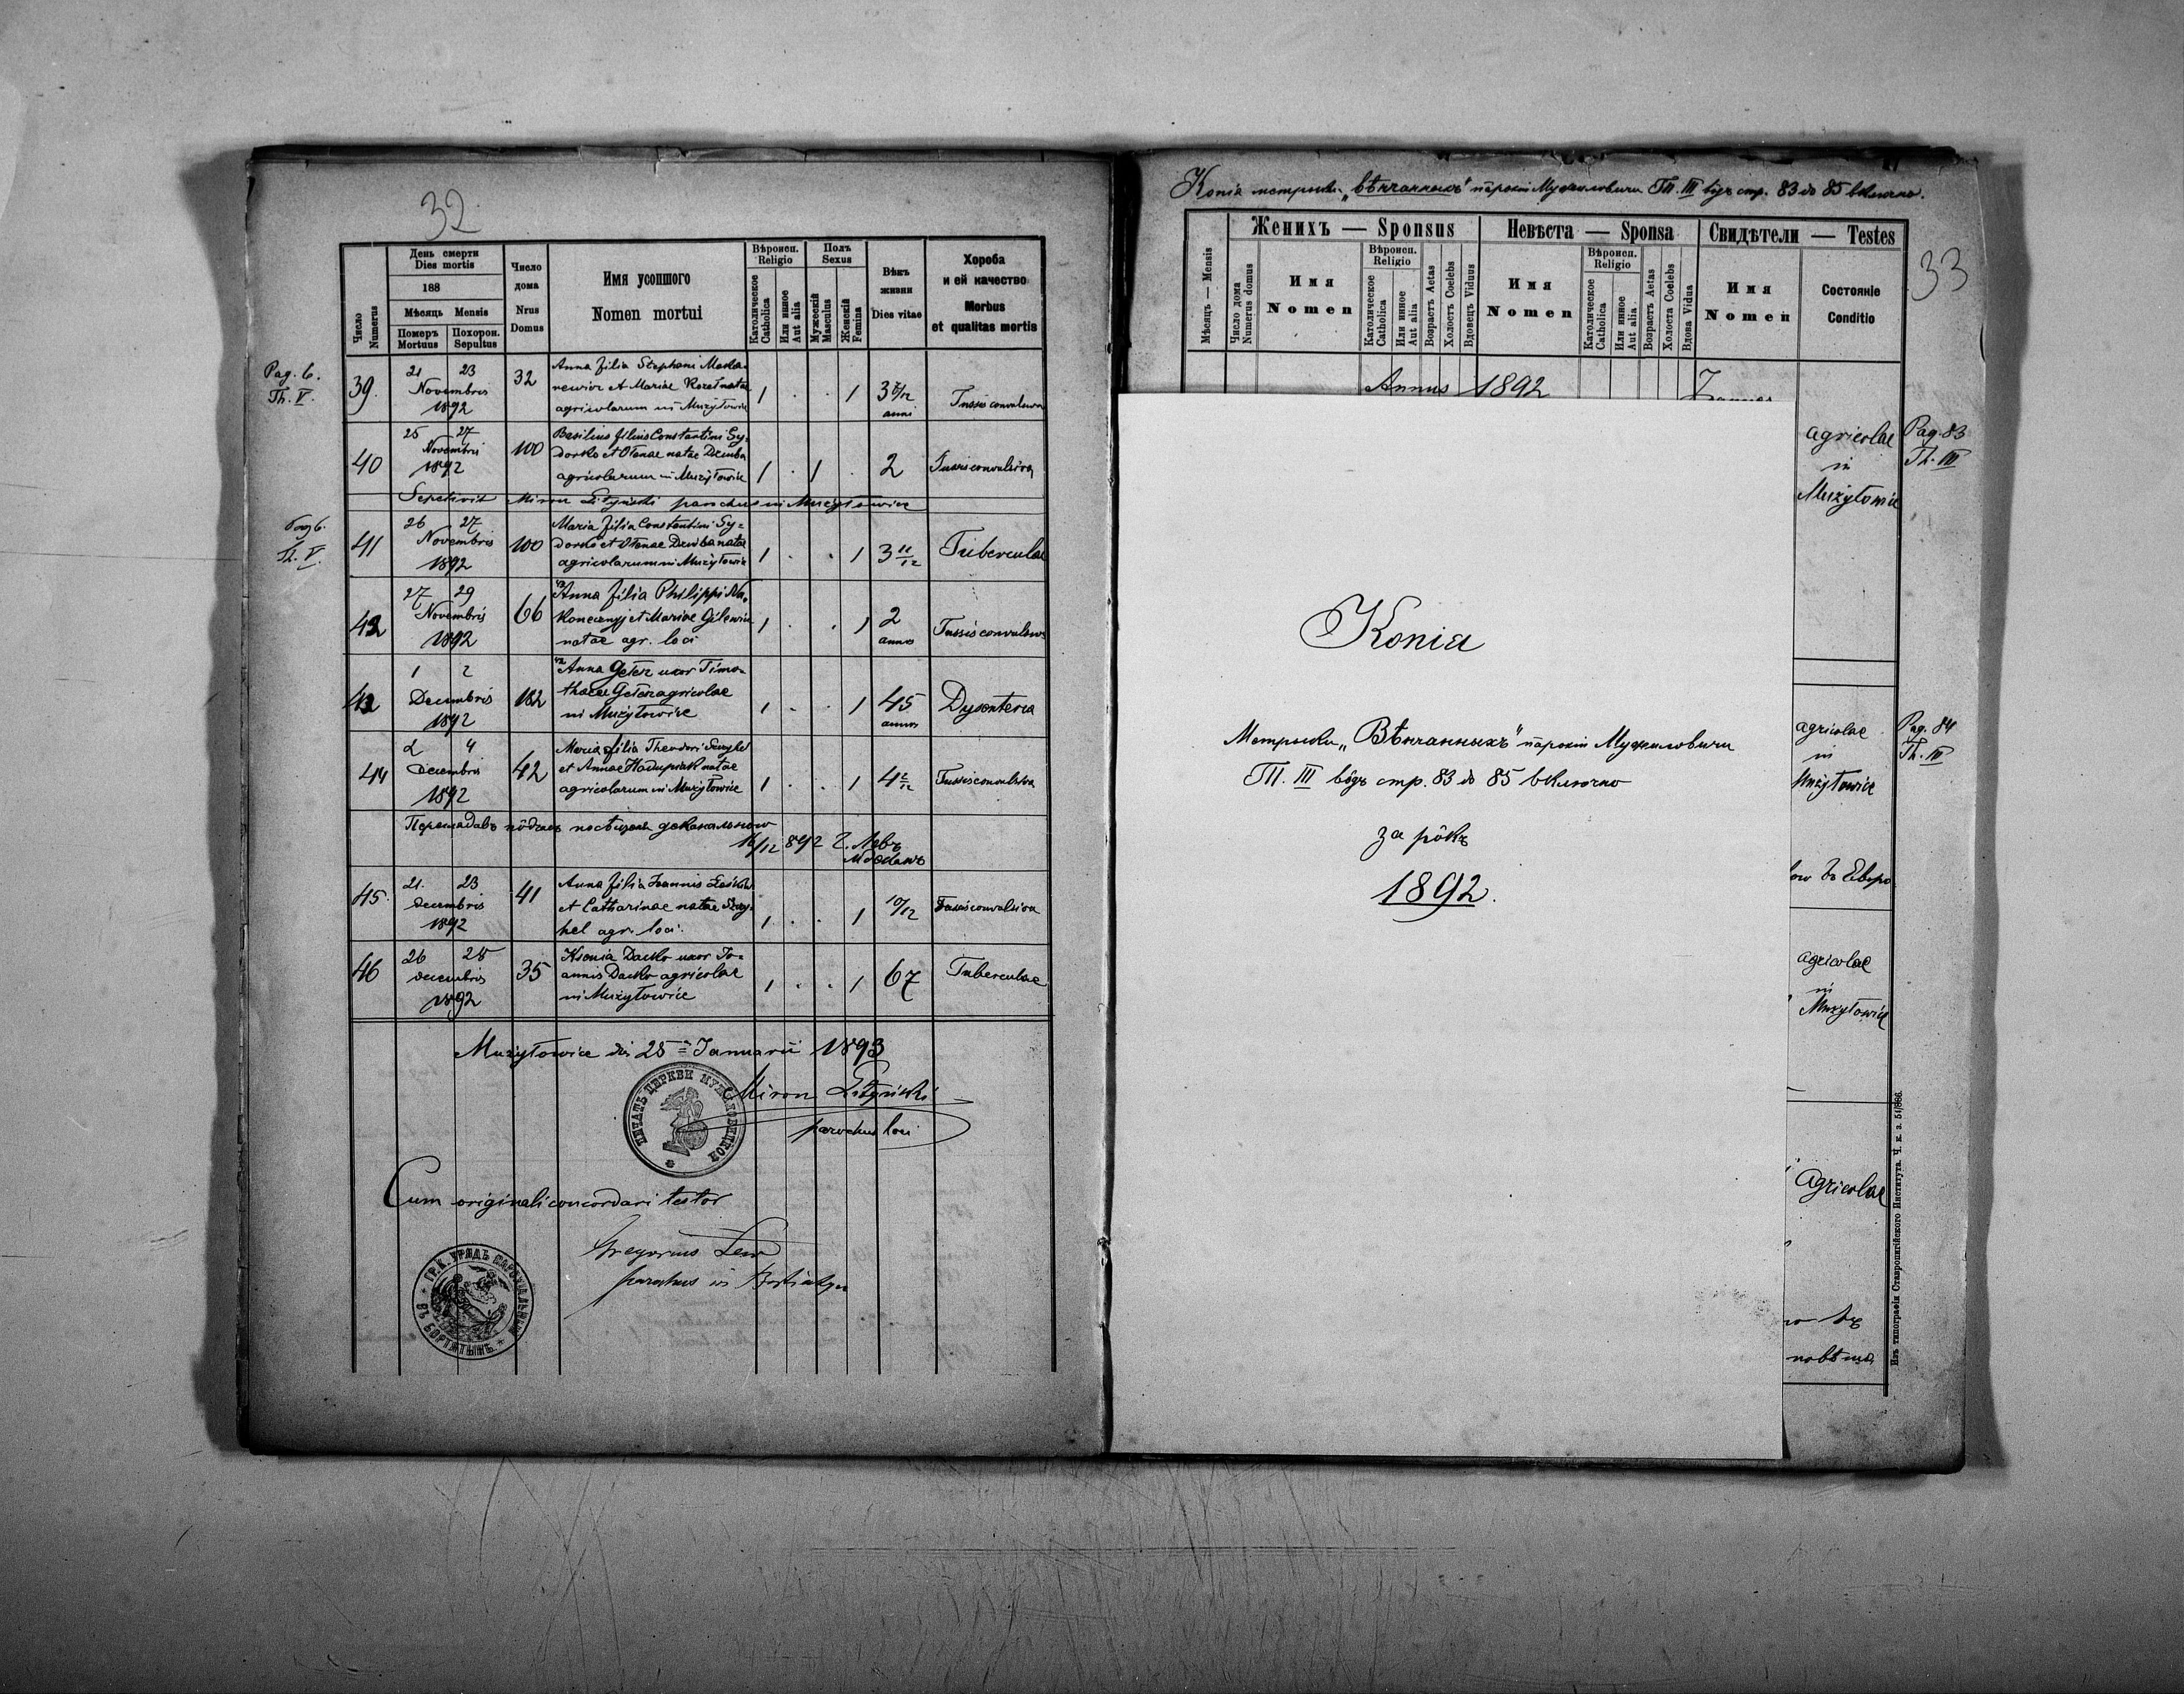 32
День смерти
Dies mortis
188
Мѣсяць Mensis
Померъ Mortuus
Похорон. Sepultus
Число Numerus
Число дома
Nrus Domus
Имя усопшого
Nomen mortui
Вѣроисп.
Religio
Католическое Catholica
Или инное Aut alia
Полъ
Sexus
Мужескій Masculus
Женскій Femina
Вѣкъ жизни
Dies vitae
Хороба и ей качество
Morbus et qualitas mortis
Pag. 6.
Th. V.
39.
21 23
Novembris
1892
32
Anna filia Stephani
et Mariae natae
agricolarum in Mużyłowice
1 . . 1
anni
Tussis convulsiva
40
25 27
Novembris
1892
100
Basilius filius Constantini Sy-
dorko et Olenae natae
agricolarum in Mużyłowice
1 . 1 .
2
Tussis convulsiva
Sepelivit Miron Lityński parochus in Mużyłowice
Th. V.
41
26 27
Novembris
1892
100
Maria filia Constantini Sy-
dorko et Olenae nata
agricolarum in Mużyłowice
1 . . 1
3 11/12
Tuberculae
42
27 29
Novembris
1892
66
Anna filia Philippi Na-
konecznyj et Mariae
natae agr. loci
1 . . 1
2
annos
Tussis convulsiva
1 2
Decembris
1892
182
Anna uxor Timo-
agricolae
in Mużyłowice
1 . . 1
45
annos
Dysenteria
44
2 4
Decembris
1892
42
Maria filia Theodori
et Annae natae
agricolarum in Mużyłowice
1 . . 1
Tussis convulsiva
16/12 892
45.
21. 23
Decembris
1892
41
Anna filia Joannis
et Catharinae natae Szny-
hel agr. loci.
1 . . 1
10/12
Tussis convulsiva
46
26 28
Decembris
1892
35
Ksenia Dacko uxor Jo-
annis Dacko agricolae
in Mużyłowice
1 . . 1
67
Tuberculae
Mużyłowice die 25 Januarii 1893
Miron Lityński
parochus loci
ПЕЧАТЬ ЦЕРКВИ МУЖИЛОВИЦКОЙ
Cum originali concordari testor
Gregorius Lew
parochus in
ГР. К. УРЯДЪ ПАРОХІАЛЬНЫЙ
ВЪ БОРТЯТЫНѢ
Копіа метрыки „вѣнчанныхъ" парохіи Мужиловичи Т. III вôдъ стр. 83 до 85 включно.
33
Мѣсяцъ — Mensis
Женихъ — Sponsus
Число дома Numerus domus
Имя
Nomen
Вѣроисп.
Religio
Католическое Catholica
Или инное Aut alia
Возрастъ Aetas
Холостъ Coelebs
Вдовецъ Viduus
Невѣста — Sponsa
Имя
Nomen
Вѣроисп.
Religio
Католическое Catholica
Или инное Aut alia
Возрастъ Aetas
Холоста Coelebs
Вдова Vidua
Свидѣтели — Testes
Имя
Nomen
Состояніе
Conditio
Annus 1892
agricolae
in
Mużyłowice
Pag. 83
Th. III
Копіа
Метрыки „Вѣнчанныхъ" парохіи Мужиловичи
Т. III вôдъ стр. 83 до 85 включно
за рôкъ
1892.
agricolae
in
Mużyłowice
Pag. 84
Th. III
agricolae
in
Mużyłowice
Agricolae
Изъ типографіи Ставропигійского Института. Ч. к. з. 51/886.